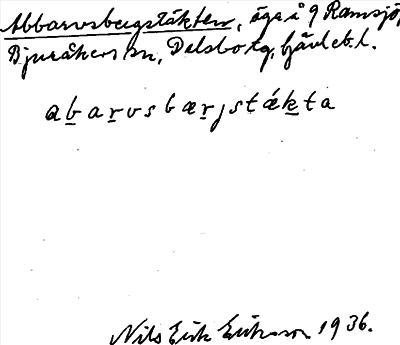 Abbarvsbergstäkten, äga å 9 Ramsjö,
Bjuråkers sn, Delsbo tg, Gävleb. l.
abarvsbærjstǽkta
Nils Erik Eriksson 1936.